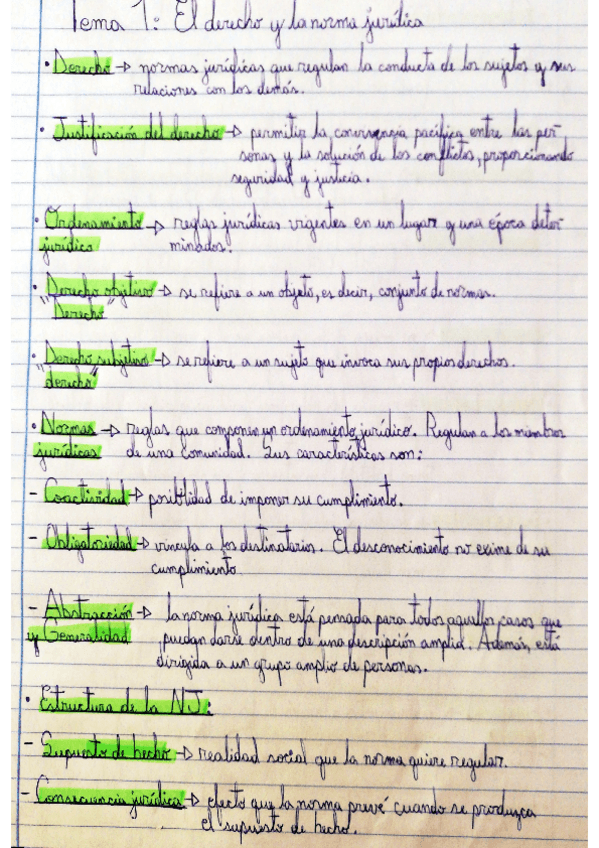 Tema 1: El derecho y la norma jurídica
• Derecho → normas jurídicas que regulan la conducta de los sujetos y sus
relaciones con los demás.
• Justificación del derecho → permitir la convivencia pacífica entre las per-
sonas y la solución de los conflictos, proporcionando
seguridad y justicia.
• Ordenamiento → reglas jurídicas vigentes en un lugar y una época deter-
jurídico minados.
• Derecho objetivo → se refiere a un objeto, es decir, conjunto de normas.
"Derecho"
• Derecho subjetivo → se refiere a un sujeto que invoca sus propios derechos.
"derecho"
• Normas → reglas que componen un ordenamiento jurídico. Regulan a los miembros
jurídicas de una comunidad. Sus características son:
- Coactividad → posibilidad de imponer su cumplimiento.
- Obligatoriedad → vincula a los destinatarios. El desconocimiento no exime de su
cumplimiento
- Abstracción → la norma jurídica está pensada para todos aquellos casos que
y Generalidad puedan darse dentro de una descripción amplia. Además, está
dirigida a un grupo amplio de personas.
• Estructura de la NJ:
- Supuesto de hecho → realidad social que la norma quiere regular.
- Consecuencia jurídica → efecto que la norma prevé cuando se produzca
el supuesto de hecho.